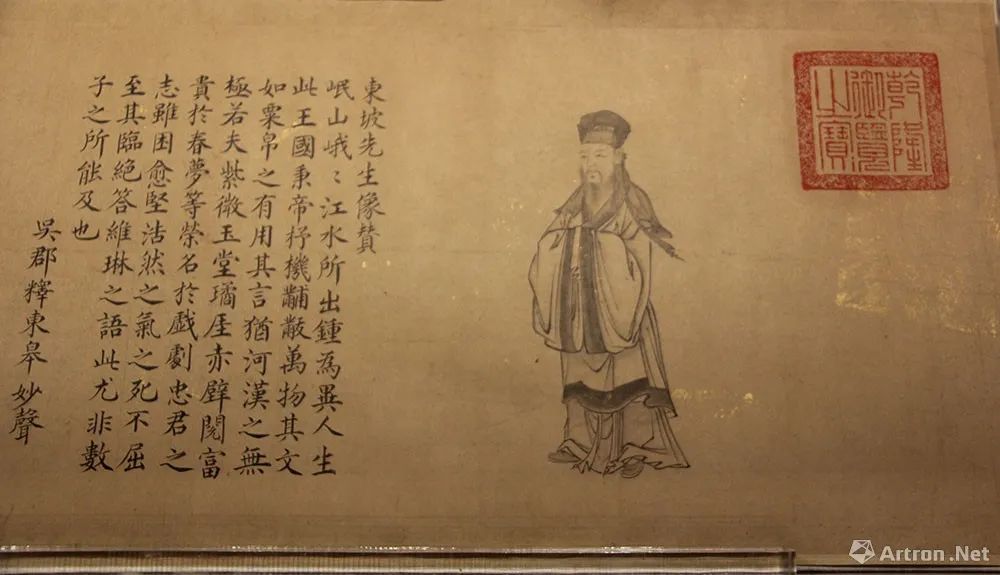 乾隆御覽之寶
東坡先生像贊
岷山峨〻江水所出鍾為異人生
此王國秉帝杼機黼黻萬物其文
如粟帛之有用其言猶河漢之無
極若夫紫微玉堂璚厓赤壁閱富
貴於春夢等榮名於戲劇忠君之
志雖困愈堅浩然之氣之死不屈
至其臨絕答維琳之語此尤非數
子之所能及也
吳郡釋東皋妙聲
Artron.Net